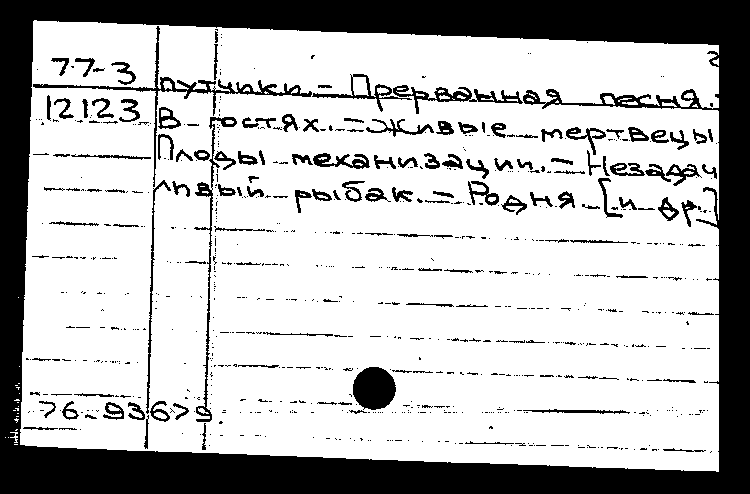 2
77-3 путчики. - Прерванная песня. -
12123 В гостях. - Живые мертвецы
Плоды механизации. - Незадач
ливый рыбак. - Родня. [и др.]
76-93679